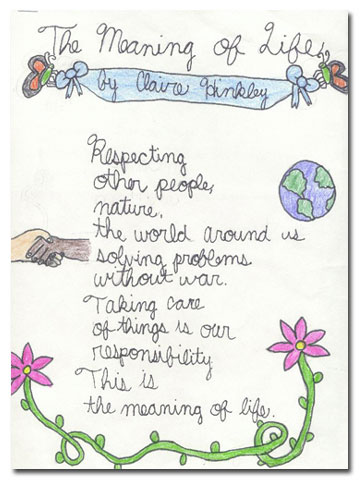 The Meaning of Life
by Claire Hinkley
Respecting
other people,
nature,
the world around us
solving problems
without war.
Taking care
of things is our
responsibility
This is
the meaning of life.